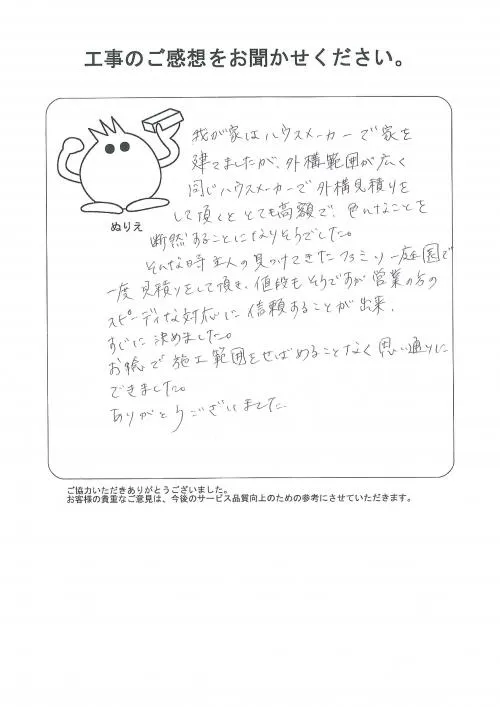 工事のご感想をお聞かせください。
ぬりえ
我が家はハウスメーカーで家を
建てましたが、外構範囲が広く
同じハウスメーカーで外構見積りを
して頂くととても高額で、色んなことを
断念することになりそうでした。
そんな時主人の見つけてきたファミリー庭園で
一度見積りをして頂き、値段もそうですが営業の方の
スピーディな対応に信頼することが出来、
すぐに決めました。
お陰で施工範囲をせばめることなく思い通りに
できました。
ありがとうございました。
ご協力いただきありがとうございました。
お客様の貴重なご意見は、今後のサービス品質向上のための参考にさせていただきます。